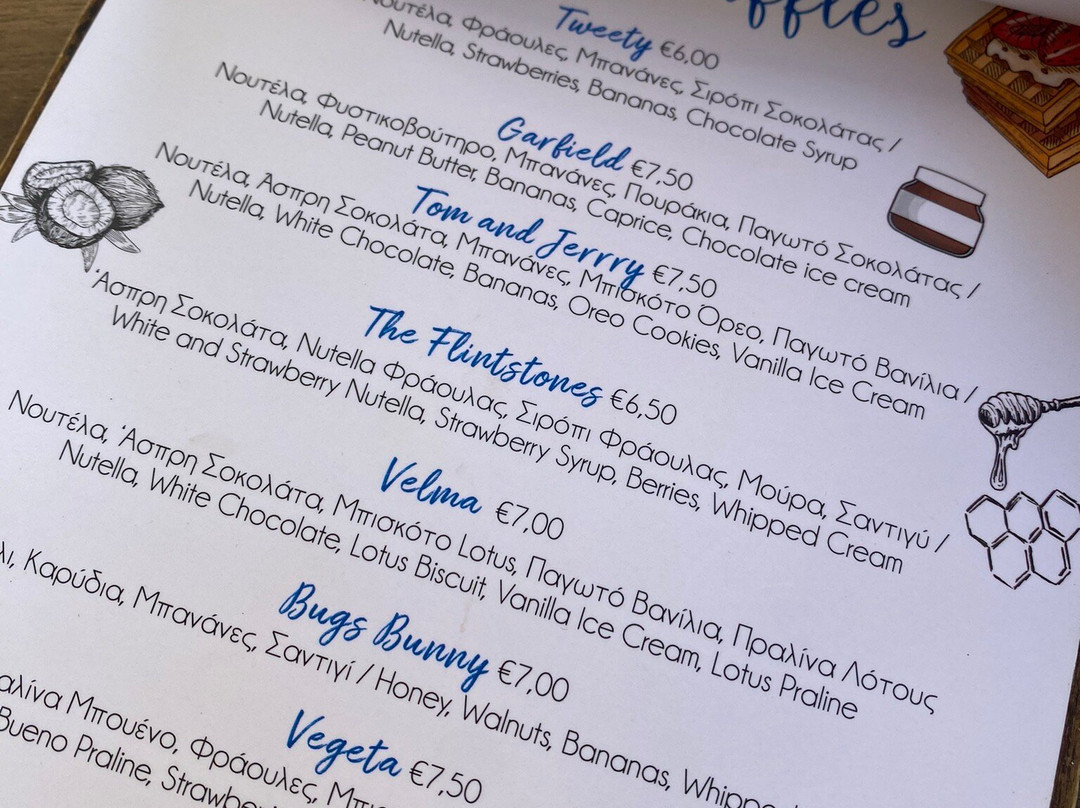 Tweety €6,00
Νουτέλα, Φράουλες, Μπανάνες, Σιρόπι Σοκολάτας /
Nutella, Strawberries, Bananas, Chocolate Syrup
Garfield €7,50
Νουτέλα, Φυστικοβούτηρο, Μπανάνες, Πουράκια, Παγωτό Σοκολάτας /
Nutella, Peanut Butter, Bananas, Caprice, Chocolate ice cream
Tom and Jerrry €7,50
Νουτέλα, Άσπρη Σοκολάτα, Μπανάνες, Μπισκότο Όρεο, Παγωτό Βανίλια /
Nutella, White Chocolate, Bananas, Oreo Cookies, Vanilla Ice Cream
The Flintstones €6,50
Άσπρη Σοκολάτα, Nutella Φράουλας, Σιρόπι Φράουλας, Μούρα, Σαντιγύ /
White and Strawberry Nutella, Strawberry Syrup, Berries, Whipped Cream
Velma €7,00
Νουτέλα, Άσπρη Σοκολάτα, Μπισκότο Lotus, Παγωτό Βανίλια, Πραλίνα Λότους
Nutella, White Chocolate, Lotus Biscuit, Vanilla Ice Cream, Lotus Praline
Bugs Bunny €7,00
Καρύδια, Μπανάνες, Σαντιγί / Honey, Walnuts, Bananas,
Vegeta €7,50
Μπουένο, Φράουλες,
Bueno Praline,